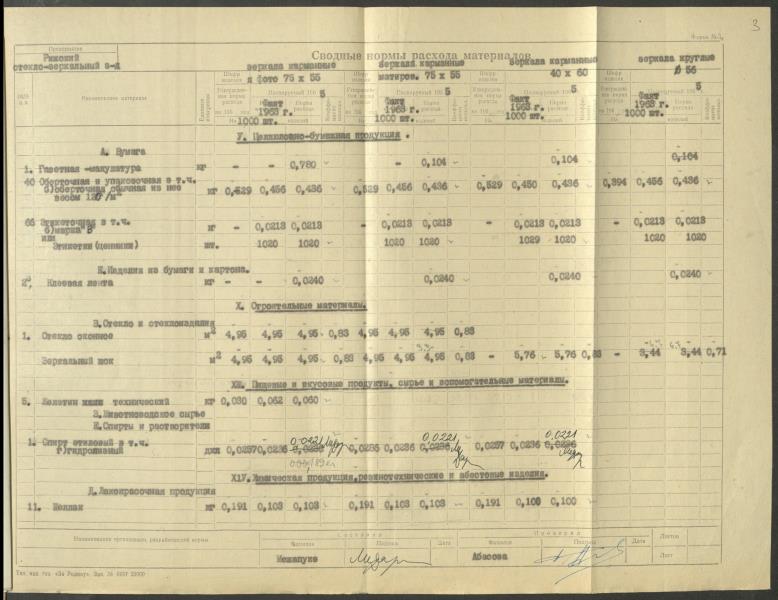 3
Форма №3
Предприятие
Рижский
стекло-зеркальный з-д
Сводные нормы расхода материалов
зеркала карманные д фото 75 х 55
зеркала карманные матиров. 75 х 55
зеркала карманные 40 х 60
зеркала круглые ф 56
Наименование материала
Единица измерения
Факт 1963 г. 1000 шт.
Факт 1963 г. 1000 шт.
Факт 1963 г. 1000 шт.
Факт 1963 г. 1000 шт.
У. Целлюлозно-бумажная продукция.
А. Бумага
1. Газетная -макулатура кг - - 0,780 - 0,104 0,104 0,104
40 Оберточная и упаковочная в т.ч.
б)оберточная обычная из нее кг 0,529 0,456 0,436 0,529 0,456 0,436 0,529 0,450 0,436 0,394 0,456 0,436
весом 127/м²
66 Этикеточная в т.ч.
б)марка"В" кг - 0,0213 0,0213 - 0,0213 0,0213 - 0,0213 0,0213 - 0,0213 0,0213
или
Этикетки(ценники) шт. 1020 1020 1020 1020 1029 1020 1020 1020
Е.Изделия из бумаги и картона.
Клеевая лента кг - - 0,0240 0,0240 0,0240 0,0240
Х. Строительные материалы.
В.Стекло и стеклоизделия
1. Стекло оконное м² 4,95 4,95 4,95 0,83 4,95 4,95 4,95 0,83
Зеркальный бок м² 4,95 4,95 4,95 0,83 4,95 4,95 4,95 0,83 - 5,76 5,76 0,83 - 3,44 3,44 0,71
XIII. Пищевые и вкусовые продукты, сырье и вспомогательные материалы.
5. Желатин технический кг 0,030 0,062 0,060
З.Животноводское сырье
Е.Спирты и растворители
0,0221 0,0221 0,0221
1. Спирт этиловый в т.ч.
г)гидролизный дкл 0,0257 0,0236 0,0236 0,0236 0,0236 0,0236 0,0257 0,0236 0,0236
ХIУ.Химическая продукция,резинотехнические и абестовые изделия.
Д.Лакокрасочная продукция
11. Шеллак кг 0,191 0,103 0,103 0,191 0,103 0,103 0,191 0,103 0,100
Наименование организации, разработавшей нормы
Составил
Проверил
Фамилия Подпись Дата Фамилия Подпись Дата Листов
Лист
Межапуке Абасова